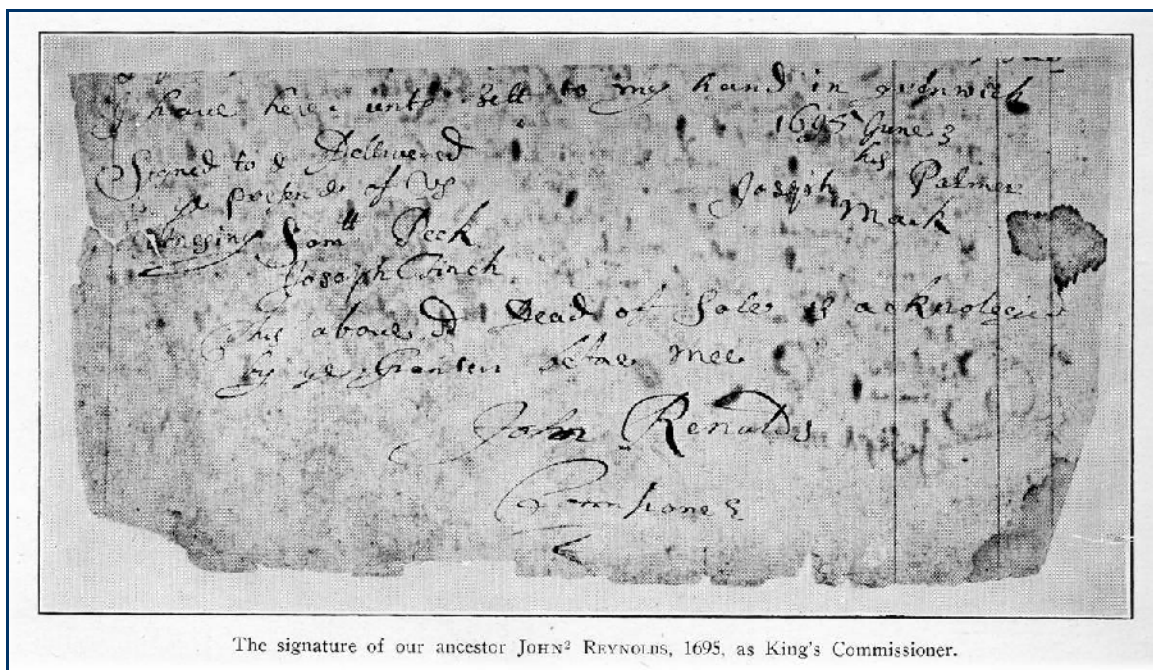 I have here unto sett to my hand in grenwich
1695 June 3
Signed to & Dellivered
his
in ye presends of us
Joseph Palmer
Mark
Witnessing Samll Peck
Joseph Finch
This above sd Dead of Sale is acknoleged
by ye Granter before mee
John Renalds
Comishoner
The signature of our ancestor JOHN² REYNOLDS, 1695, as King's Commissioner.